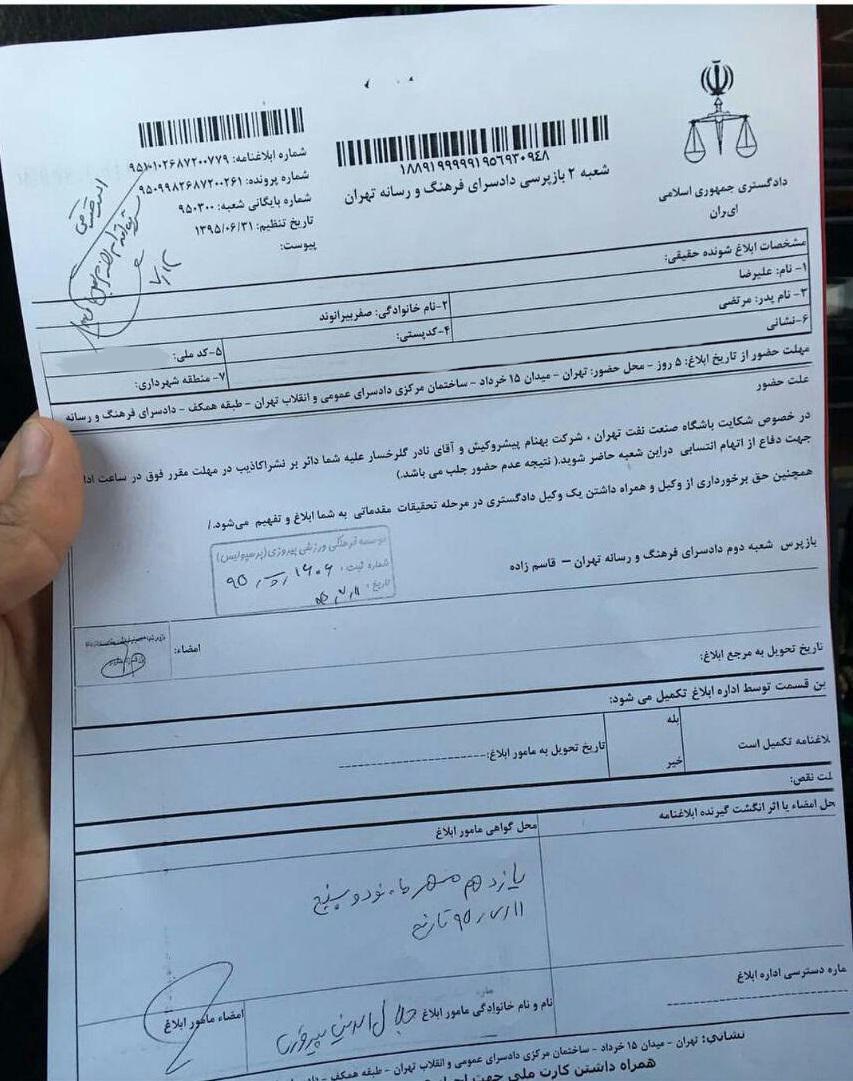 دادگستری جمهوری اسلامی
ایران
۱۸۸۹۱۹۹۹۹۹۱۹۵۶۹۳۰۹۴۸
شعبه ۲ بازپرسی دادسرای فرهنگ و رسانه تهران
شماره ابلاغنامه: ۹۵۱۰۱۰۲۶۸۷۲۰۰۷۷۹
شماره پرونده: ۹۵۰۹۹۸۲۶۸۷۲۰۰۲۶۱
شماره بایگانی شعبه: ۹۵۰۳۰۰
تاریخ تنظیم: ۱۳۹۵/۰۶/۳۱
پیوست:
مشخصات ابلاغ شونده حقیقی:
۱- نام: علیرضا
۲-نام خانوادگی: صفربیرانوند
۳- نام پدر: مرتضی
۴-کدپستی:
۵-کد ملی:
۶-نشانی
۷- منطقه شهرداری:
مهلت حضور از تاریخ ابلاغ: ۵ روز - محل حضور: تهران - میدان ۱۵ خرداد - ساختمان مرکزی دادسرای عمومی و انقلاب تهران - طبقه همکف - دادسرای فرهنگ و رسانه
علت حضور
در خصوص شکایت باشگاه صنعت نفت تهران ، شرکت بهنام پیشروکیش و آقای نادر گلرخسار علیه شما دائر بر نشراکاذیب در مهلت مقرر فوق در ساعت ادا
جهت دفاع از اتهام انتسابی دراین شعبه حاضر شوید.( نتیجه عدم حضور جلب می باشد.)
همچنین حق برخورداری از وکیل و همراه داشتن یک وکیل دادگستری در مرحله تحقیقات مقدماتی به شما ابلاغ و تفهیم می‌شود./
بازپرس شعبه دوم دادسرای فرهنگ و رسانه تهران – قاسم زاده
موسسه فرهنگی ورزشی پیروزی (پرسپولیس)
شماره ثبت:
تاریخ:
امضاء:
تاریخ تحویل به مرجع ابلاغ:
ین قسمت توسط اداره ابلاغ تکمیل می شود:
لاغنامه تکمیل است
بله
خیر
تاریخ تحویل به مامور ابلاغ:
لت نقص:
حل امضاء یا اثر انگشت گیرنده ابلاغنامه
محل گواهی مامور ابلاغ
یازدهم مهر ماه نود و پنج
۹۵/۷/۱۱ تاریخ
ماره دسترسی اداره ابلاغ
نام و نام خانوادگی مامور ابلاغ جلال الدین
امضاء مامور ابلاغ
نشانی: تهران - میدان ۱۵ خرداد - ساختمان مرکزی دادسرای عمومی و انقلاب تهران - طبقه همکف -
همراه داشتن کارت ملی جهت